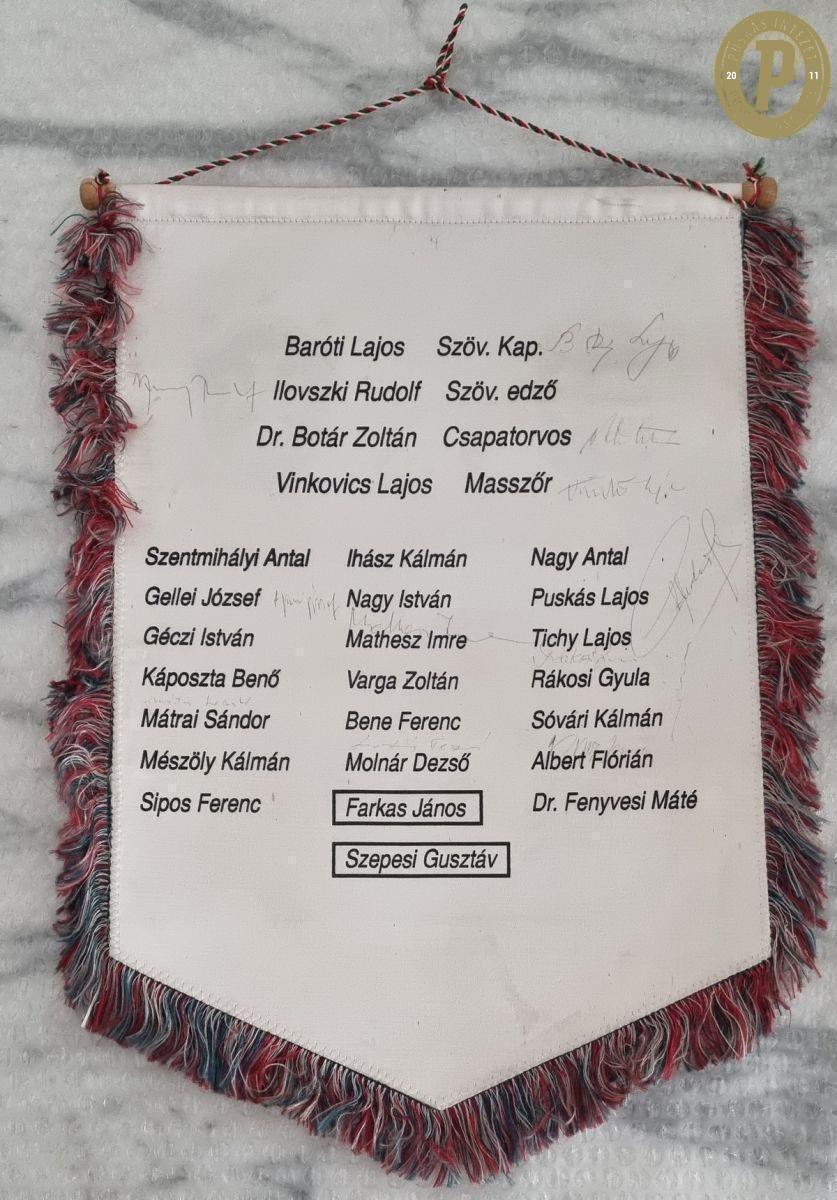 PUSKÁS INTÉZET
20 11
P
Baróti Lajos Szöv. Kap.
Ilovszki Rudolf Szöv. edző
Dr. Botár Zoltán Csapatorvos
Vinkovics Lajos Masszőr
Szentmihályi Antal Ihász Kálmán Nagy Antal
Gellei József Nagy István Puskás Lajos
Géczi István Mathesz Imre Tichy Lajos
Káposzta Benő Varga Zoltán Rákosi Gyula
Mátrai Sándor Bene Ferenc Sóvári Kálmán
Mészöly Kálmán Molnár Dezső Albert Flórián
Sipos Ferenc Farkas János Dr. Fenyvesi Máté
Szepesi Gusztáv